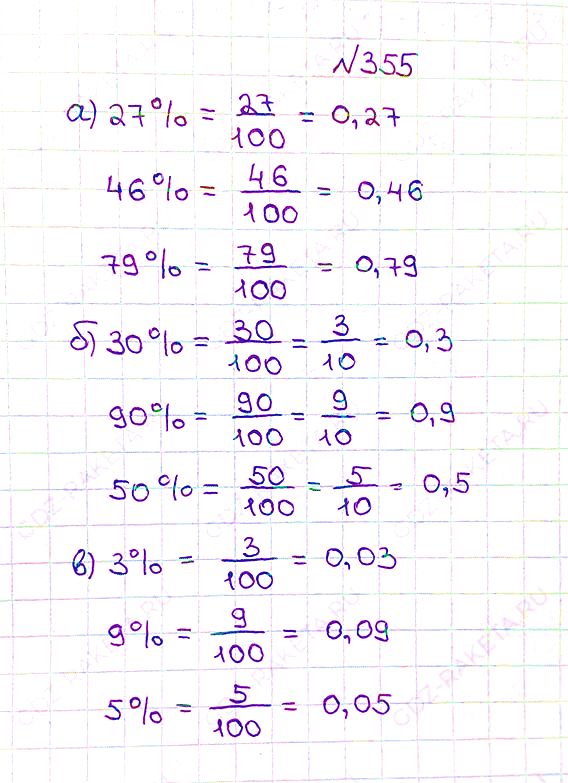 №355
а) 27% = 27/100 = 0,27
46% = 46/100 = 0,46
79% = 79/100 = 0,79
б) 30% = 30/100 = 3/10 = 0,3
90% = 90/100 = 9/10 = 0,9
50% = 50/100 = 5/10 = 0,5
в) 3% = 3/100 = 0,03
9% = 9/100 = 0,09
5% = 5/100 = 0,05
GDZ-RAKETA.RU